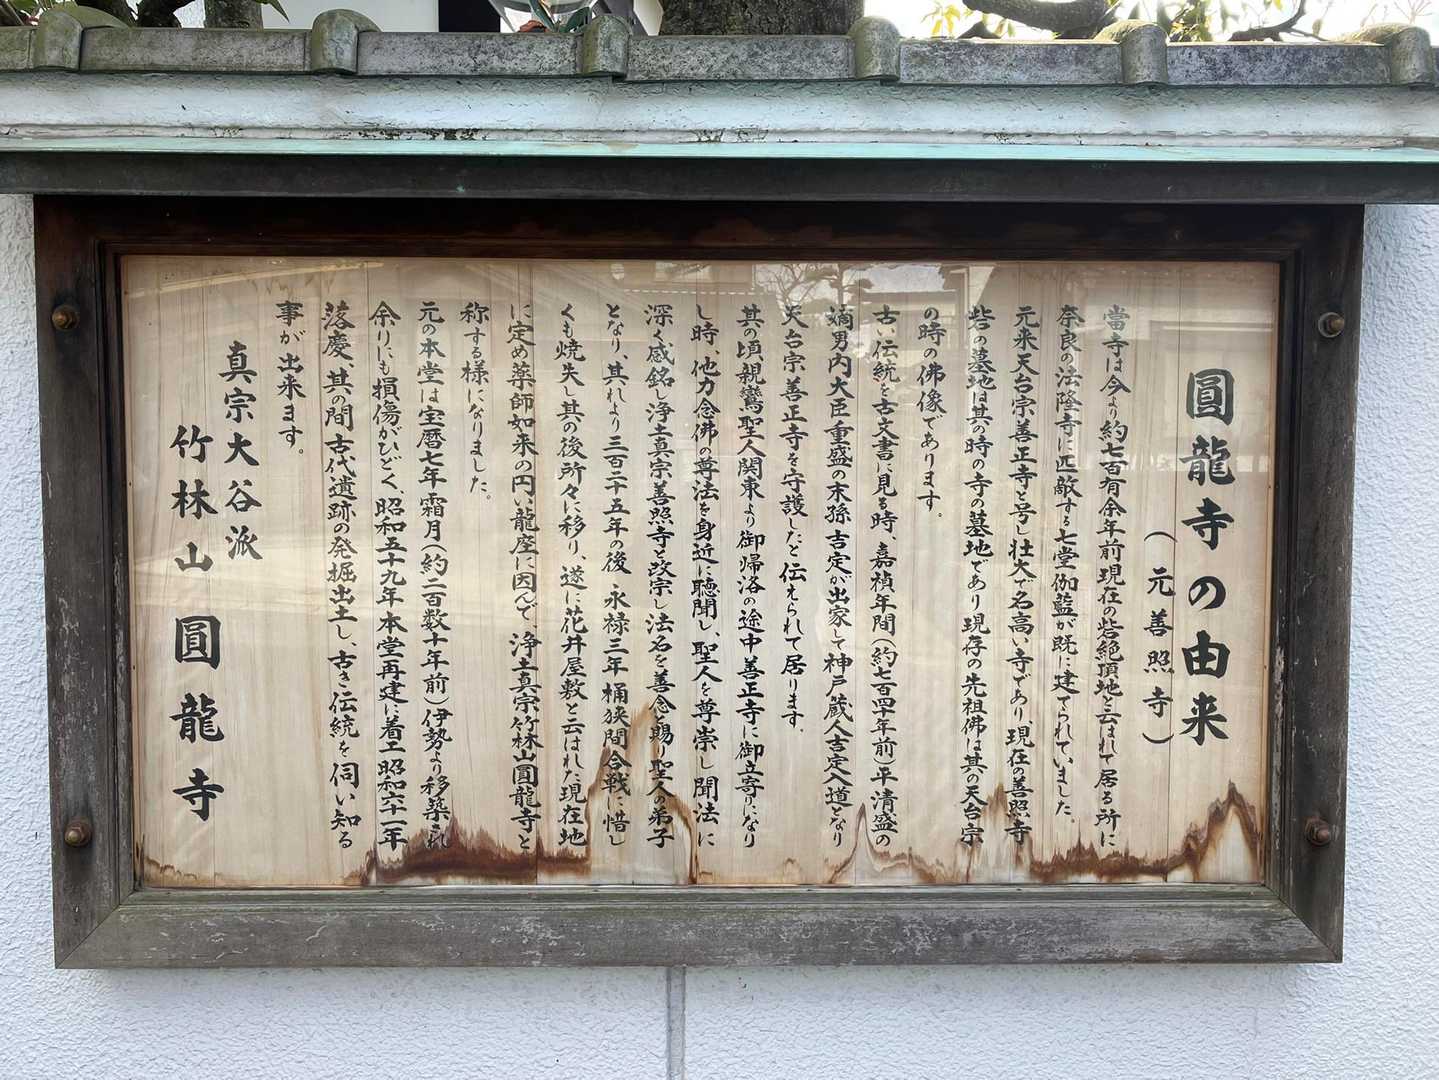 圓龍寺の由来
(元善照寺)
當寺は今より約七百有余年前現在の砦絶頂地と云はれて居る所に
奈良の法隆寺に匹敵する七堂伽藍が既に建てられていました。
元来天台宗善正寺と号し壮大で名高い寺であり、現在の善照寺
砦の墓地は其の時の寺の墓地であり現存の先祖佛は其の天台宗
の時の佛像であります。
古い伝統を古文書に見る時、嘉禎年間(約七百四十年前)平清盛の
嫡男内大臣重盛の末孫吉定が出家して神戸蔵人吉定入道となり
天台宗善正寺を守護したと伝えられて居ります。
其の頃親鸞聖人関東より御帰洛の途中善正寺に御立寄りになり
し時、他力念佛の尊法を身近に聴聞し、聖人を尊崇し聞法に
深く感銘し浄土真宗善照寺と改宗し法名を善念と賜り聖人の弟子
となり、其れより三百二十五年の後永禄三年桶狭間合戦に惜し
くも焼失し其の後所々に移り、遂に花井屋敷と云はれた現在地
に定め薬師如来の円い龍座に因んで、浄土真宗竹林山圓龍寺と
称する様になりました。
元の本堂は宝暦七年霜月(約二百数十年前)伊勢より移築され
余りにも損傷がひどく、昭和五十九年本堂再建に着工昭和六十一年
落慶、其の間古代遺跡の発掘出土し、古き伝統を伺い知る
事が出来ます。
真宗大谷派
竹林山 圓龍寺